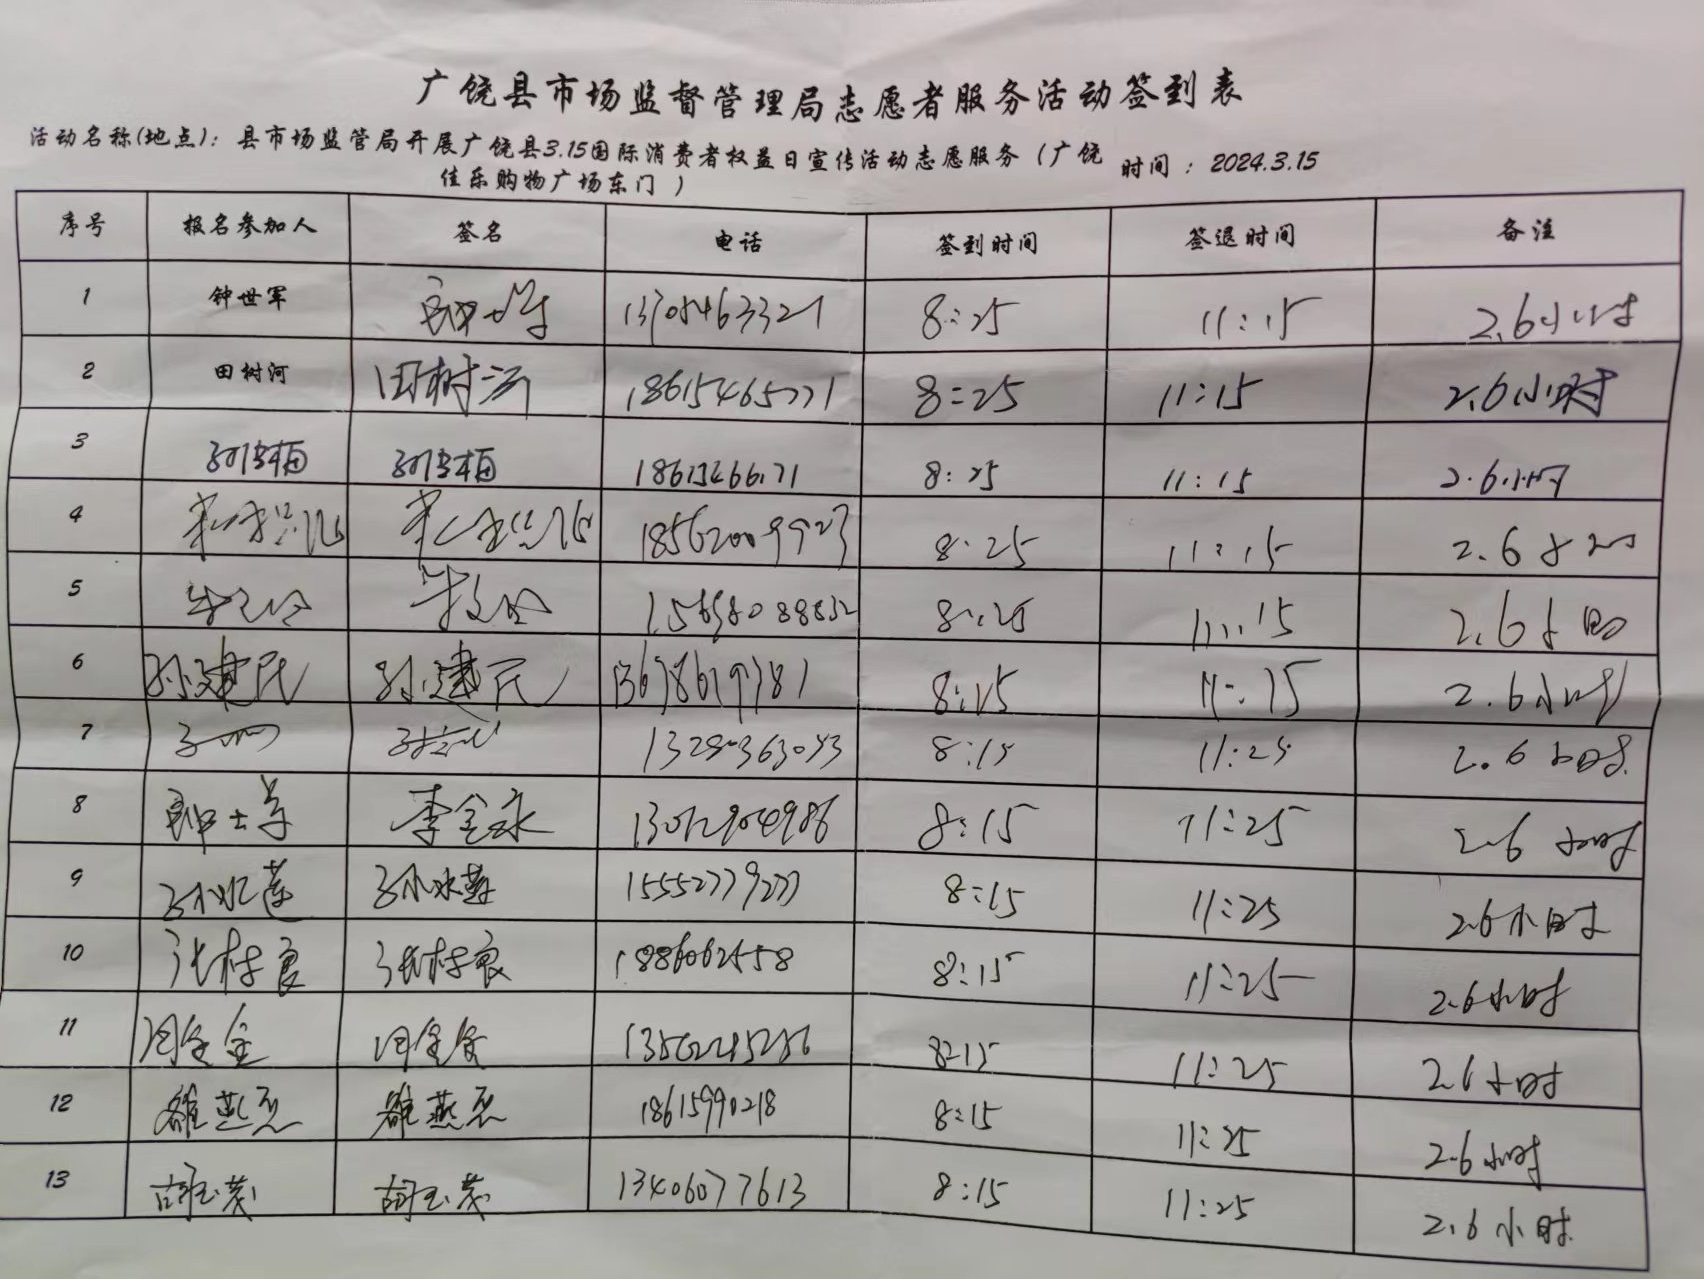 广饶县市场监督管理局志愿者服务活动签到表
活动名称(地点)：县市场监管局开展广饶县3.15国际消费者权益日宣传活动志愿服务（广饶佳乐购物广场东门） 时间：2024.3.15
序号 报名参加人 签名 电话 签到时间 签退时间 备注
1 钟世军 13705463321 8:25 11:15 2.6小时
2 田树河 田树河 18615465771 8:25 11:15 2.6小时
3 8:25 11:15 2.6小时
4 18562009923 8:25 11:15 2.6小时
5 8:25 11:15 2.6小时
6 孙建民 孙建民 8:15 11:15 2.6小时
7 8:15 11:25 2.6小时
8 李金永 8:15 11:25 2.6小时
9 孙水莲 孙冰莲 15552779277 8:15 11:25 2.6小时
10 张树良 张树良 1886062558 8:15 11:25 2.6小时
11 8:15 11:25 2.6小时
12 18615990218 8:15 11:25 2.6小时
13 胡玉茂 胡玉茂 13406077613 8:15 11:25 2.6小时